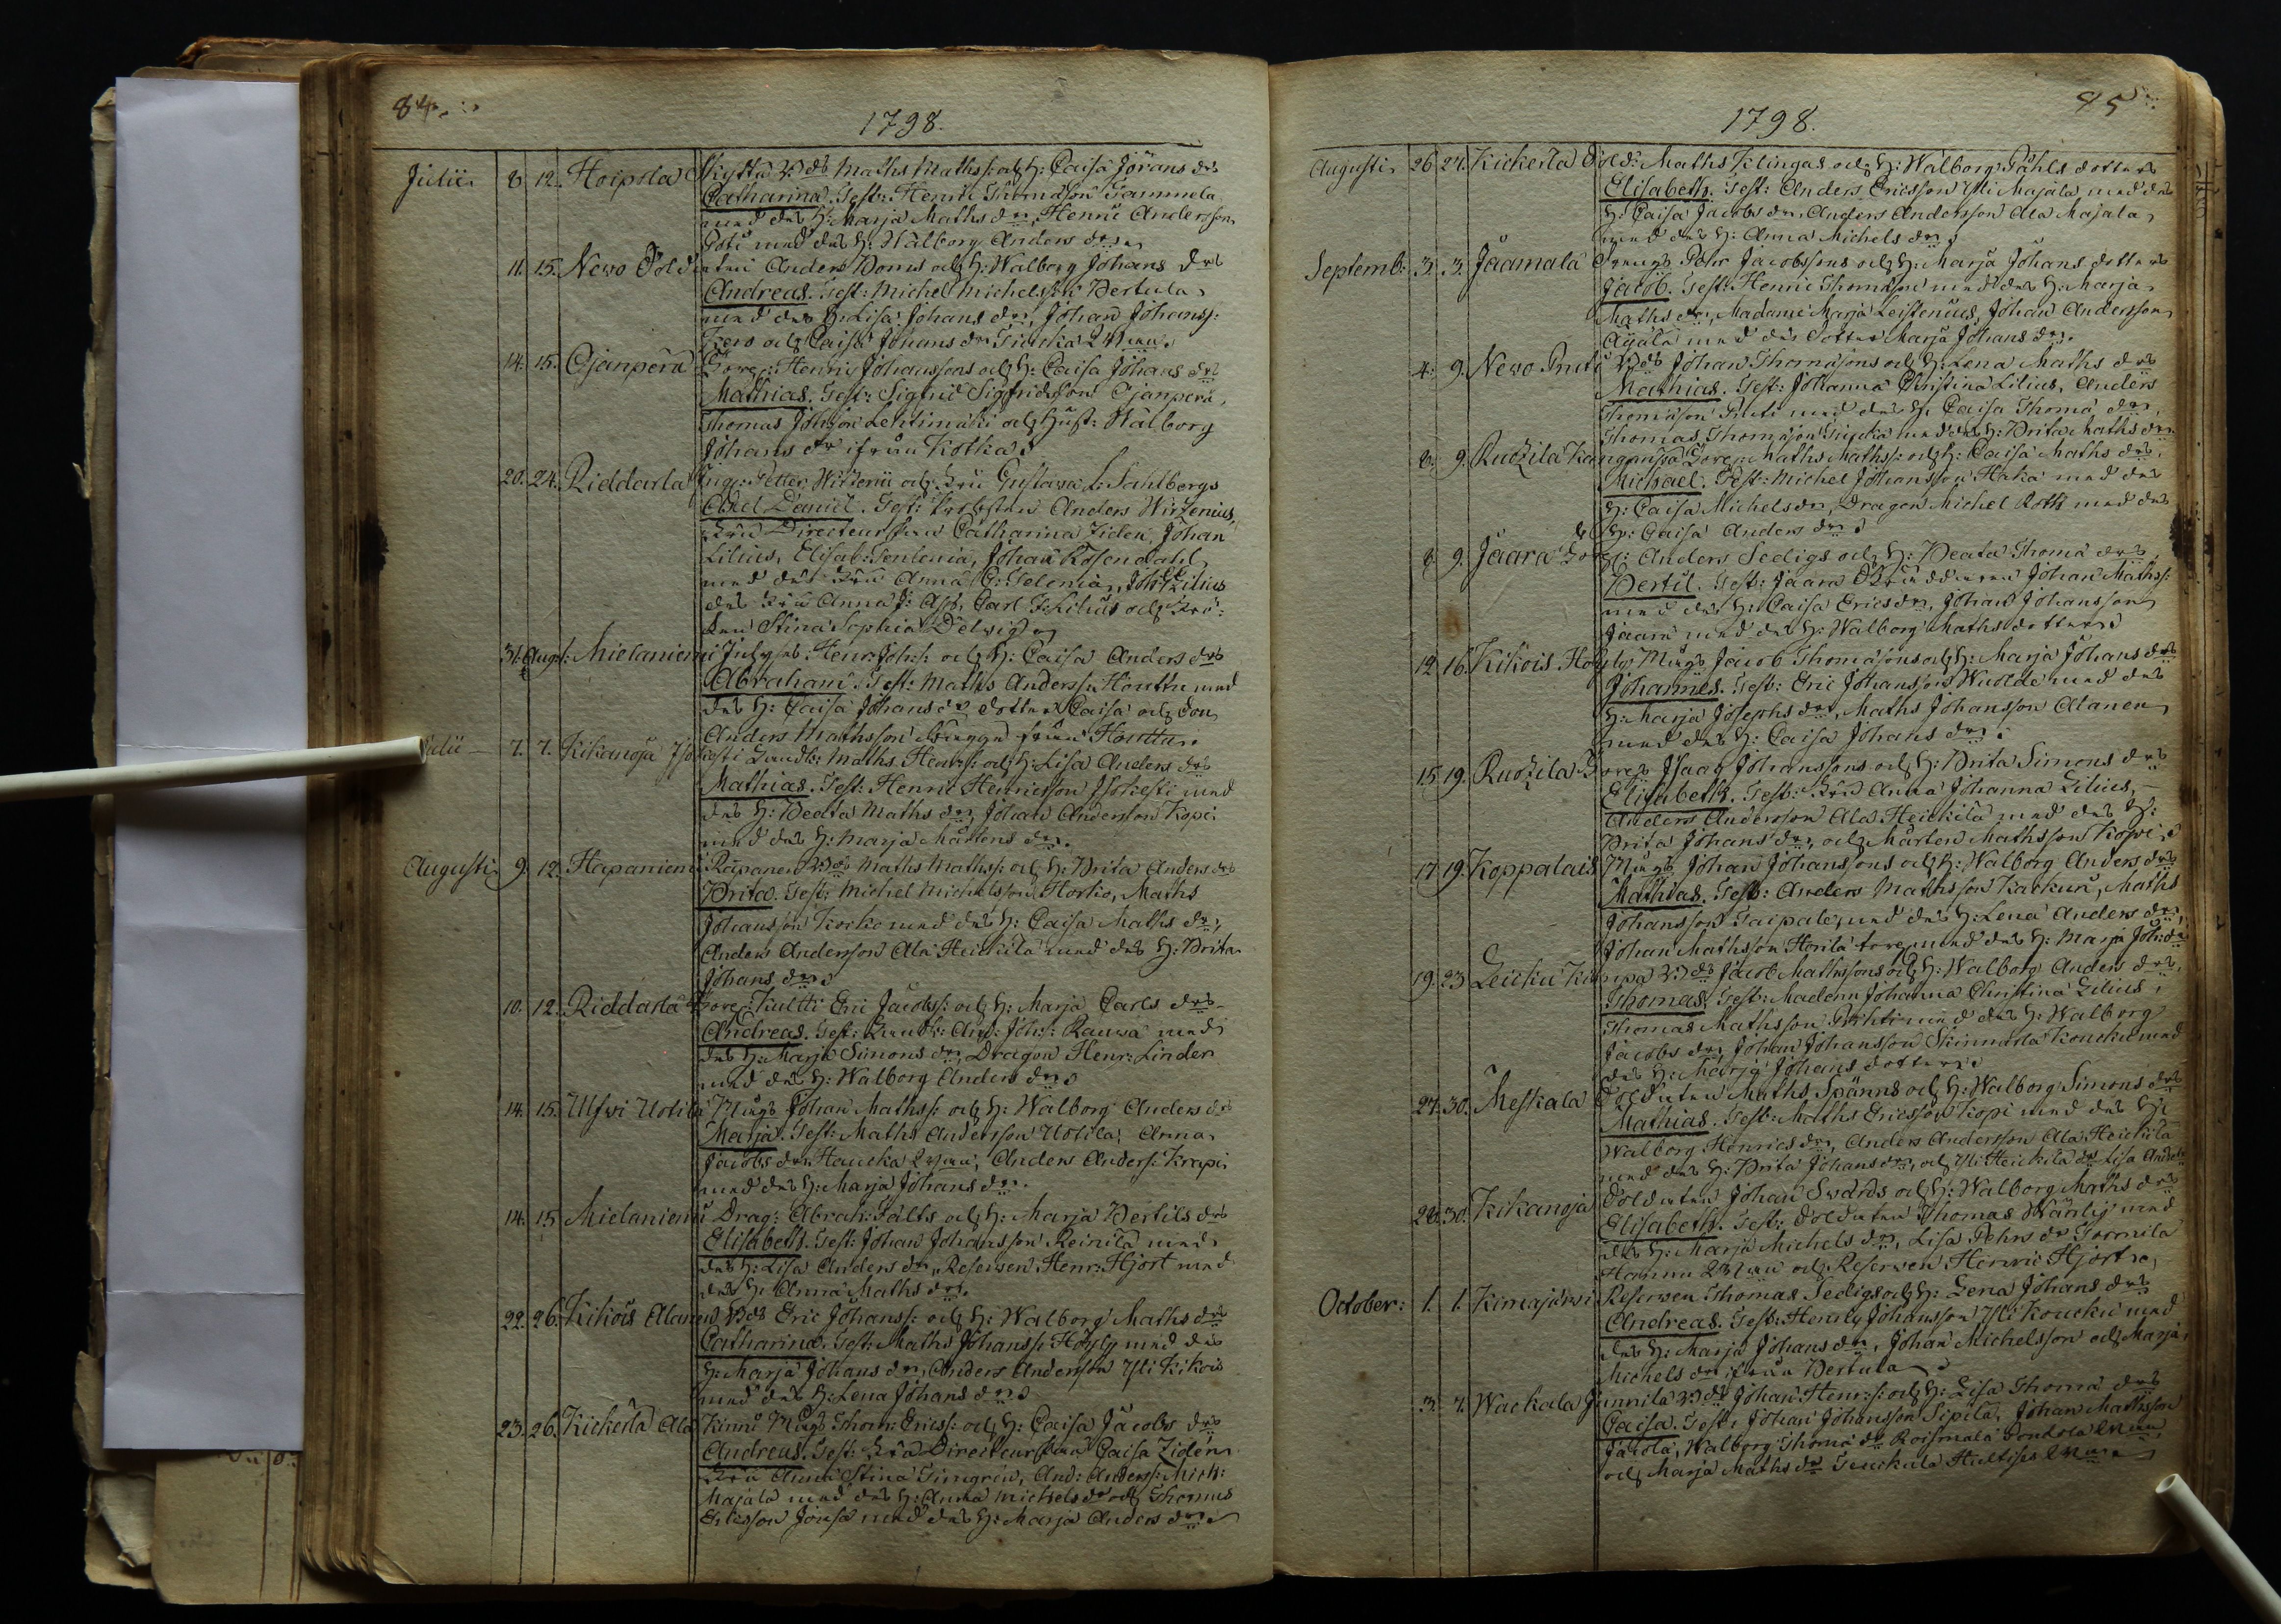 84.
1798.
Julii. 8. 12. Hoipola Skytta Bds Maths Mathss: och H: Caisa Jörans drs
Catharina. Test: Henric Thomason Tammela
med des H: Marja Maths dr, Henric Andersson
Poti med des H: Walborg Anders dr.
11. 15. Newo Soldaten Anders Doms och H: Walborg Johans drs
Andreas. Test: Michel Michelsson Pertula
med des H: Lisa Johans dr, Johan Johanss:
Kero och Caisa Johans dr
14. 15. Ojanperä Torp: Henric Johanssons och H: Caisa Johans drs
Mathias. Test: Sigfrid Sigfridsson Ojanperä,
Thomas Johsson Lehtimäki och Hust: Walborg
Johans dr ifrån Kotka.
20. 24. Riddarla Petter Wirzenii och Fru Gustava L: Sahlbergs
Axel Daniel. Test: Probsten Anders Wirzenius,
Fru Directeurskan Catharina Ziden, Johan
Lilius, Elisab: Johan Rosendahl
med des Fru Anna C: Joh: Lilius
des Fru Anna J: Carl Lilius och Frö-
ken Stina Sophia Delwig
31. Aug: Mielaniemi Henr: Johss: och H: Caisa Anders drs
Abraham. Test: Maths Anderss: Houttu med
des H: Caisa Johans dr dotter Caisa och
Anders Mathsson från Houttu.
Julii 7. 7. Kikanoja Isokesti Landb: Maths Henrss: och H: Lisa Anders drs
Mathias. Test: Henric Henricsson Isokesti med
des H: Beata Maths dr, Johan Andersson Kopi
med des H: Marja Mårtens dr.
Augusti 9. 12. Hapaniemi Rapanen Bds Maths Mathss: och H: Brita Anders drs
Brita. Test: Michel Michelsson Horko, Maths
Johansson Korko med des H: Caisa Maths dr,
Anders Andersson Ala Heickilä med des H: Brita
Johans dr.
10. 12. Riddarla Torp: Kultti Eric Jacobss: och H: Marja Carls drs
Andreas. Test: Landb: And: Johss: Rauwa med
des H: Marja Simons dr, Dragon Henr: Linder
med des H: Walborg Anders dr.
14. 15. Ulfwi Uotila Mågs Johan Mathss: och H: Walborg Anders drs
Marja. Test: Maths Andersson Uotila, Anna
Jacobs dr Haucka Anders Anderss: Krapi
med des H: Marja Johans dr.
14. 15. Mielaniemi Drag: Abrah: Fälts och H: Marja Bertils drs
Elisabeth. Test: Johan Johansson Reinilä med
des H: Lisa Anders dr, Reserven Henr: Hjort med
des H: Anna Maths dr.
22. 26. Kikois Alanen Bds Eric Johanss: och H: Walborg Maths drs
Catharina. Test: Maths Johanss: Höyly med des
H: Marja Johans dr, Anders Andersson Yli Kikois
med des H: Lena Johans dr.
23. 26. Kickerla Ala Kinni Mågs Thom: Ericss: och H: Caisa Jacobs drs
Andreas. Test: Fru Directeurskan Caisa Ziden
Fru Anna Stina Timgren, And: Anderss: Mich:
Majala med des H: Anna Michels dr och Thomas
Ericsson Jousa med des H: Marja Anders dr.
85
1798.
Augusti 26 27. Kickerla Sold: Maths Klingas och H: Walborg Påhls dotters
Elisabeth. Test: Anders Ericsson Yli Majala med des
H: Caisa Jacobs dr, Anders Andersson Ala Majala
med des H: Anna Michels dr.
Septemb: 3. 3. Jaamala Drengs Pehr Jacobssons och H: Marja Johans dotters
Jacob. Test: Henric Thomason med des H: Marja
Maths dr, Madame Marja Leistenius, Johan Andersson
Äijälä med des dotter Marja Johans dr.
4. 9. Newo Pruti Bds Johan Thomasons och H: Lena Maths drs
Mathias. Test: Johanna Christina Lilius, Anders
Thomason Pruti med des H: Caisa Thoma dr,
Thomas Thomason med des H: Brita Maths dr.
8. 9. Rudzila Kangansja Torp: Maths Mathss: och H: Caisa Maths drs,
Michael. Test: Michel Johansson Haka med des
H: Caisa Michels dr, Dragon Michel Roth med des
H: Caisa Anders dr.
8. 9. Jaara Torp: Anders Sedigs och H: Beata Thoma drs
Bertil. Test: Jaara Johan Mathss:
med des H: Caisa Erics dr, Johan Johansson
Jaara med des H: Walborg Maths dotter.
12. 16. Kikois Höyly Mågs Jacob Thomasons och H: Marja Johans drs
Johannes. Test: Eric Johansson Wuolde med des
H: Marja Josephs dr, Maths Johansson Alanen
med des H: Caisa Johans dr.
15. 19. Rudzila Torp: Isaac Johanssons och H: Brita Simons drs
Elisabeth. Test: Fru Anna Johanna Lilius,
Anders Andersson Ala Heickilä med des H:
Brita Johans dr, och Mårten Mathsson Kopi.
17. 19. Koppalais Mågs Johan Johanssons och H: Walborg Anders drs
Mathias. Test: Anders Mathsson Karkun, Maths
Johansson Taipale med des H: Lena Anders dr,
Johan Mathsson Horila torp med des H: Marja Joh: dr
19. 23. Leicku Bds Jacob Mathssons och H: Walborg Anders drs,
Thomas. Test: Madem: Johanna Christina Lilius,
Thomas Mathsson med des H: Walborg
Jacobs dr, Johan Johansson Skinnarla Koucku med
des H: Marja Johans dotter.
27. 30. Meskala Soldaten Maths Spänns och H: Walborg Simons drs
Mathias. Test: Maths Ericsson Kopi med des H:
Walborg Henrics dr, Anders Andersson Ala Heickilä
med des H: Brita Johans dr, och Yli Heickilä dr Lisa Anders
28. 30. Kikanoja Soldaten Johan Swärds och H: Walborg Maths drs
Elisabeth. Test: Soldaten Thomas Wänlig med
des H: Marja Michels dr, Lisa Pehrs dr Tormila
Hannu och Reserven Henric Hjort.
October: 1. 1. Kimajärwi Reserven Thomas Sedigs och H: Lena Johans drs
Andreas. Test: Henric Johansson Yli Koucku med
des H: Marja Johans dr, Johan Michelsson och Marja
Michels dr ifrån Pertula.
3. 7. Wackala Junnila Bds Johan Henrss: och H: Lisa Thoma drs
Caisa. Test: Johan Johansson Sipilä, Johan Mathsson
Jutola, Walborg Thoma dr
och Marja Maths dr